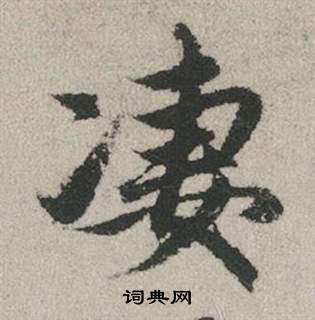 凄
词典网